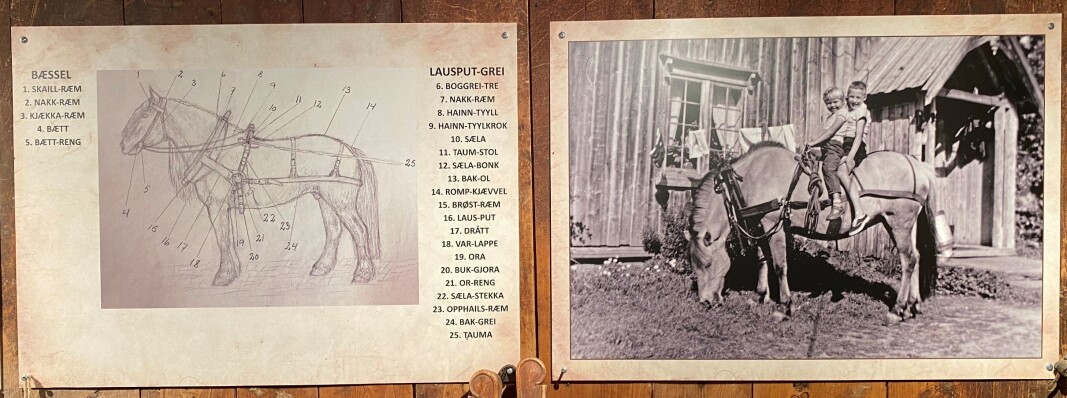 BÆSSEL
1. SKAILL-RÆM
2. NAKK-RÆM
3. KJÆKKA-RÆM
4. BÆTT
5. BÆTT-RENG
1
2
3
4
5
6
7
8
9
10
11
12
13
14
15
16
17
18
19
20
21
22
23
24
25
LAUSPUT-GREI
6. BOGGREI-TRE
7. NAKK-RÆM
8. HAINN-TYYLL
9. HAINN-TYYLKROK
10. SÆLA
11. TAUM-STOL
12. SÆLA-BONK
13. BAK-OL
14. ROMP-KJÆVVEL
15. BRØST-RÆM
16. LAUS-PUT
17. DRÅTT
18. VAR-LAPPE
19. ORA
20. BUK-GJORA
21. OR-RENG
22. SÆLA-STEKKA
23. OPPHAILS-RÆM
24. BAK-GREI
25. TAUMA